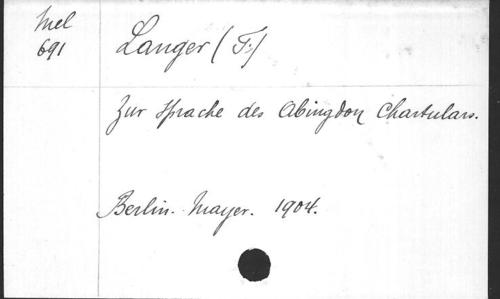 Mel
691
Langer (F.)
Zur Sprache des Abingdon Chartulars.
Berlin. Mayer. 1904.